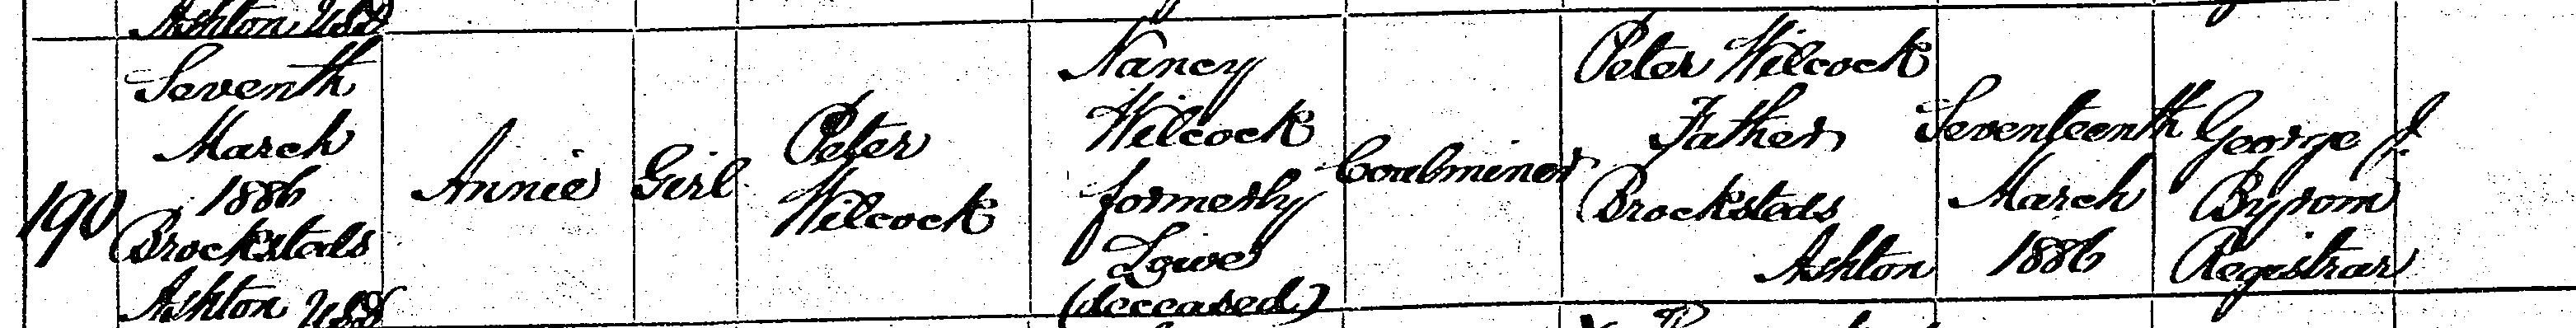 Ashton USD
190
Seventh
March
1886
Brocksteds
Ashton USD
Annie
Girl
Peter
Wilcock
Nancy
Wilcock
formerly
Lowe
(deceased)
Coalminer
Peter Wilcock
Father
Brocksteds
Ashton
Seventeenth
March
1886
George J.
Byrom
Registrar